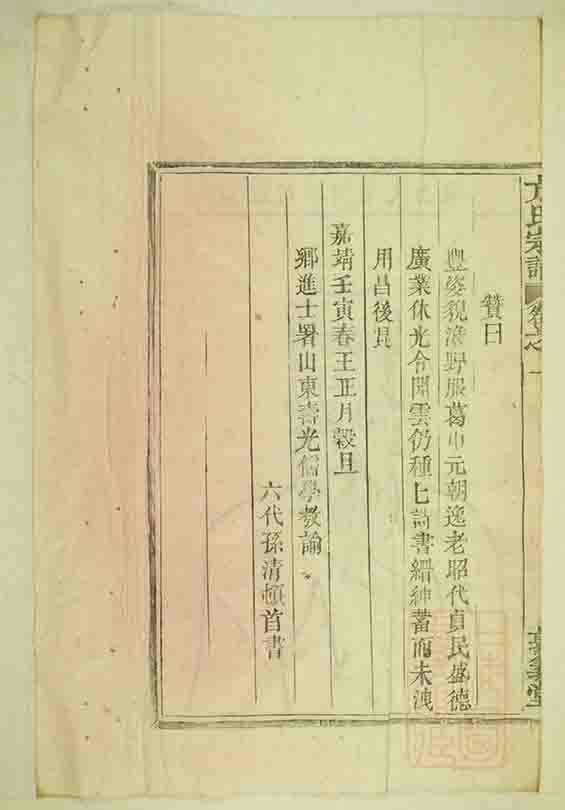 氏宗譜 卷之一
贊曰
豊姿貌澹野服葛巾元朝逸老昭代貞民盛德
廣業休光令聞雲仍種七詩書縉紳蓄而未洩
用昌後昆
嘉靖壬寅春王正月穀旦
鄉進士署山東壽光儒學教諭
六代孫清頓首書
堂